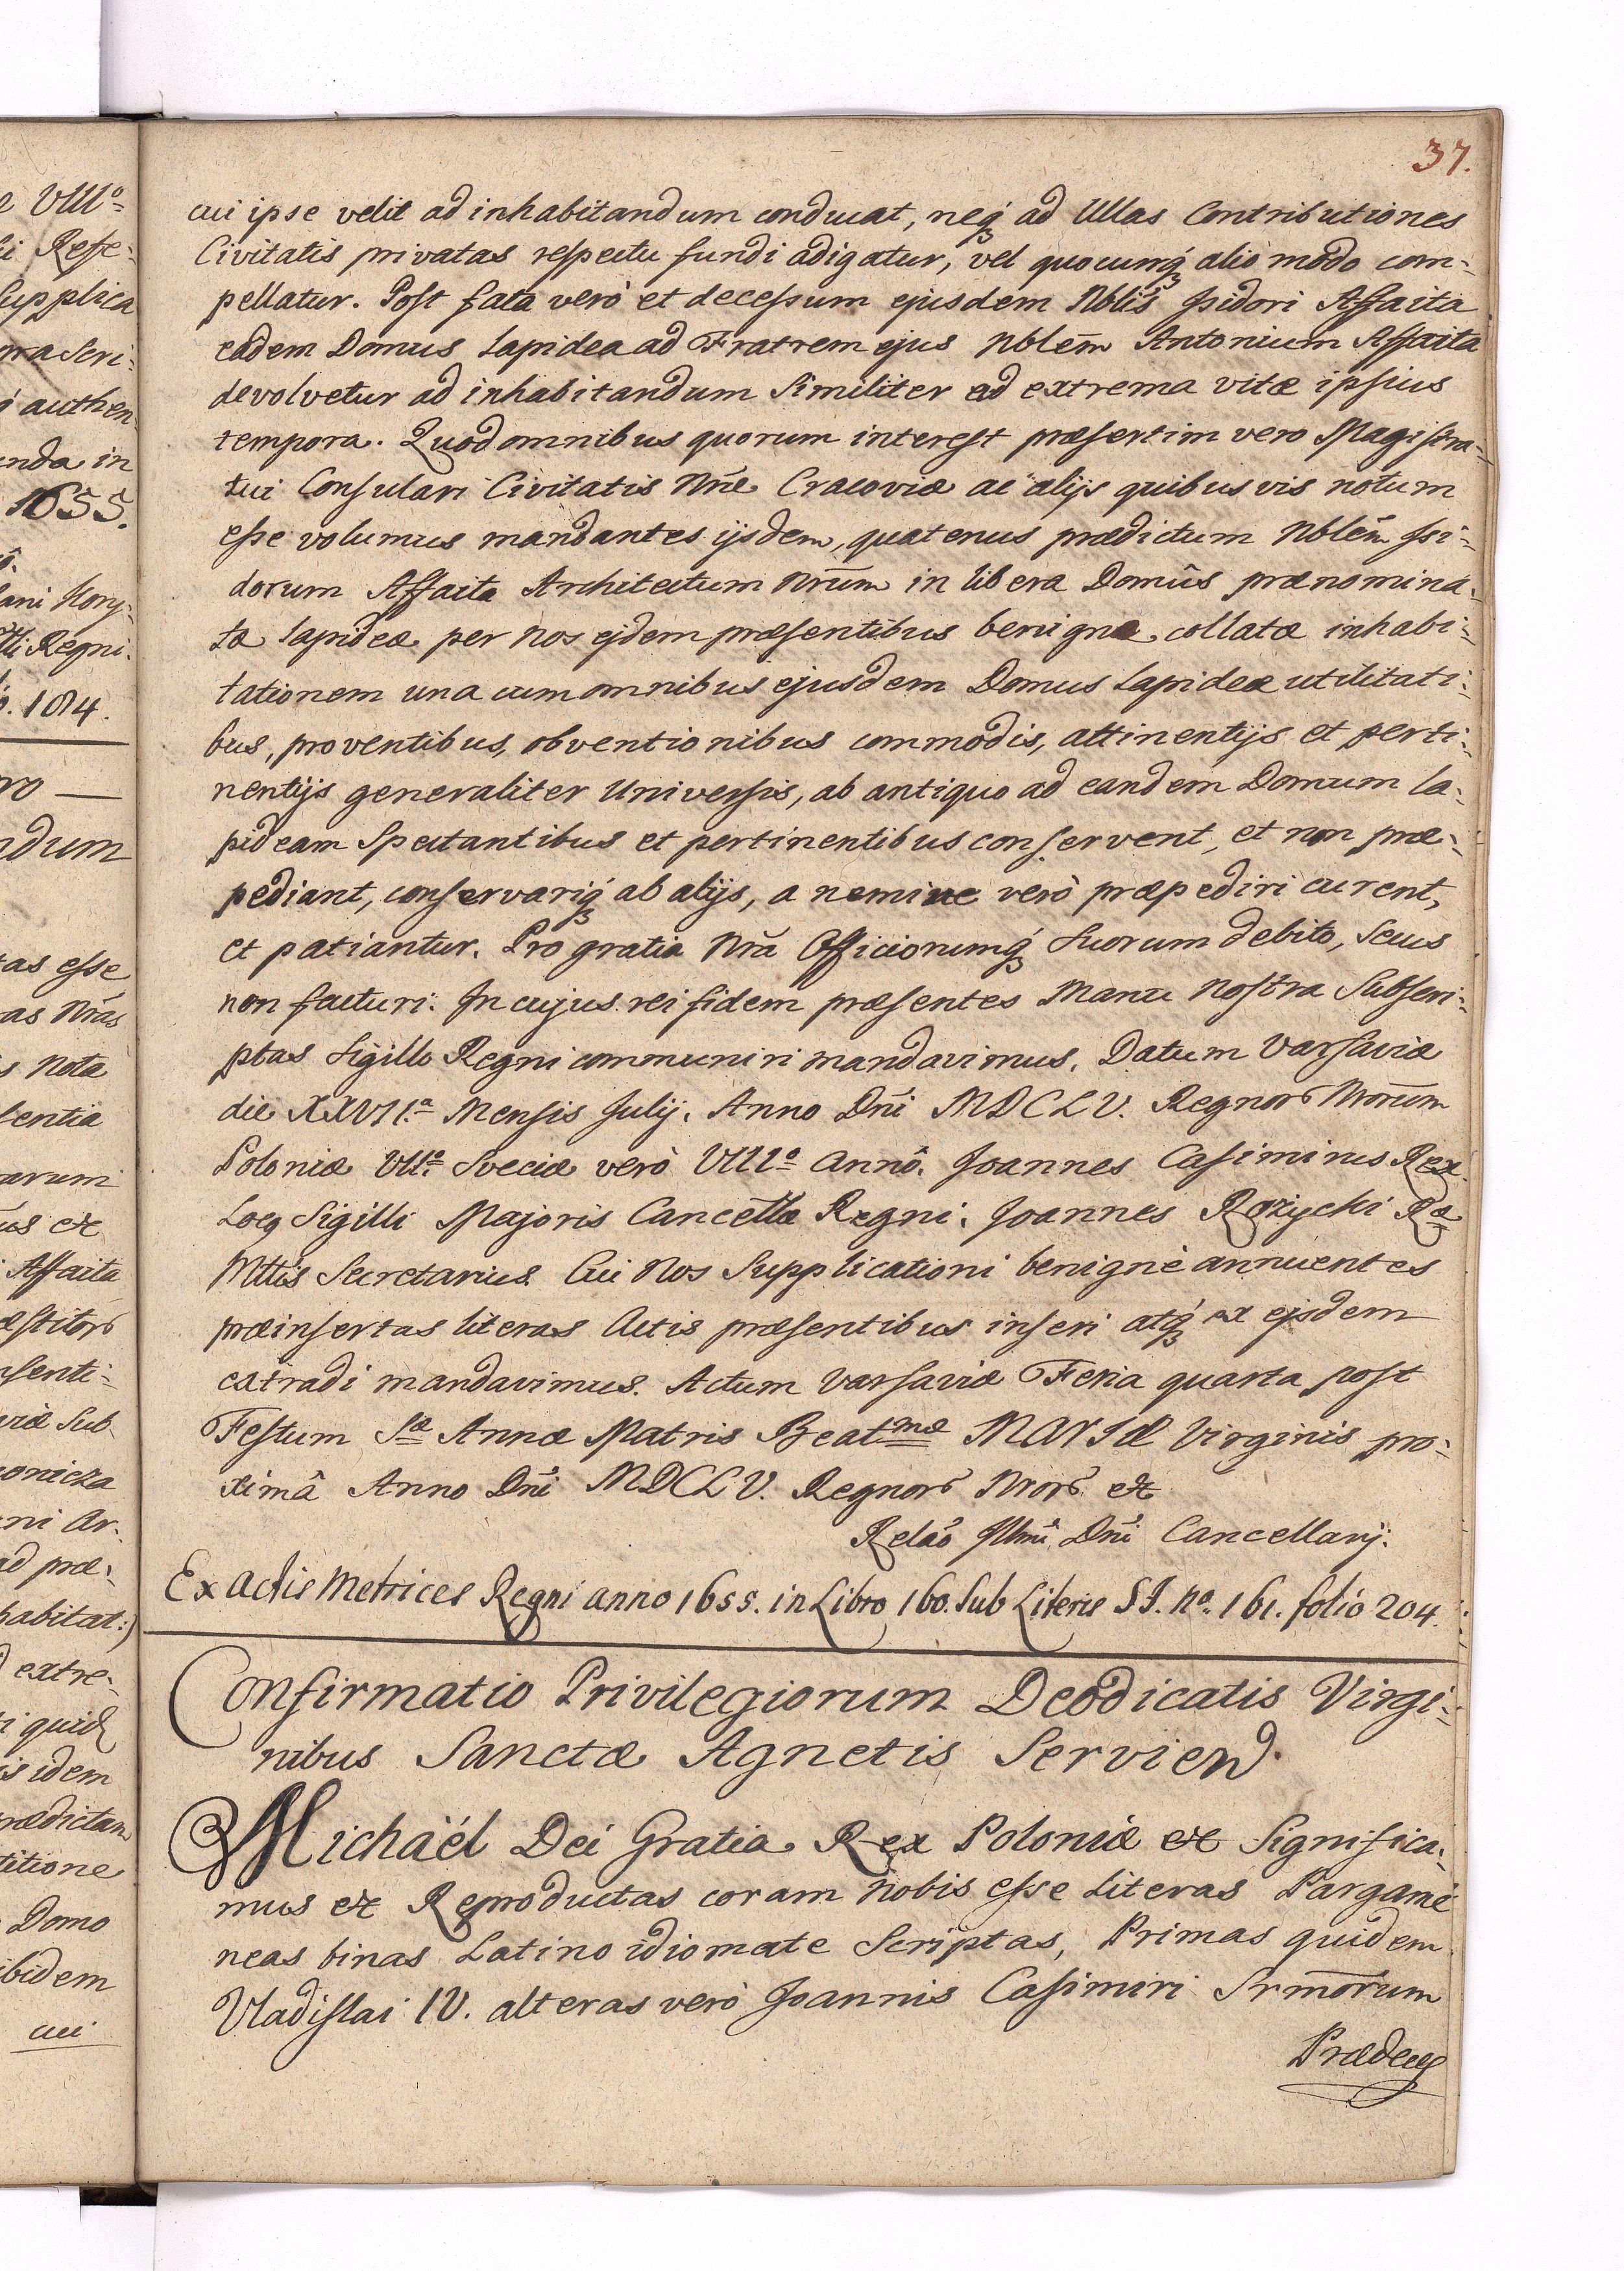 37.
cui ipse velit ad inhabitandum conducat, neq́ꝫ ad Ullas Contributiones
Civitatis privatas respectu fundi adigatur, vel quocumq́ꝫ alio modo com-
pellatur. Post fata verò et decessum ejusdem Nblis̃ Isidori Affaita
eadem Domus Lapidea ad Fratrem ejus Nblem̃ Antonium Affaita
devolvetur ad inhabitandum Similiter ad extrema vitæ ipsius
tempora. Quod omnibus quorum interest præsertim vero Magistra-
tui Consulari Civitatis Nrẽ Cracoviæ ac alijs quibusvis notum
esse volumus mandantes ijsdem, quatenus prædictum Nblem̃ Isi-
dorum Affaita Architectum Nrũm in libera Domûs prænomina-
tæ Lapideæ per Nos ejdem præsentibus benigne collatæ inhabi-
tationem una cum omnibus ejusdem Domus Lapideæ utilitati-
bus, proventibus, obventionibus commodis, attinentijs et perti-
nentijs generaliter Universis, ab antiquo ad eandem Domum La-
pideam Spectantibus et pertinentibus conservent, et non præ-
pediant, conservariq́ꝫ ab alijs, a nemine verò præpediri curent,
et patiantur. Pro gratia Nrã Officiorumq́ꝫ Suorum debito, Secus
non facturi. In cujus rei fidem præsentes Manu Nostra Subscri-
ptas Sigillo Regni communiri mandavimus. Datum Varsaviæ
die XXVII.a Mensis Julij. Anno Dñi MDCLV. Regnor Nrorũm
Poloniæ VII.o Sveciæ verò VIIIo Annô. Joannes Casimirus Rex
Locq Sigilli Majoris Cancellæ Regni. Joannes Rożycki Ræ
Mttis Secretarius Cui Nos Supplicationi benignè annuentes
præinsertas literas Actis præsentibus inseri atq́ꝫ ex ejsdem
extradi mandavimus. Actum Varsaviæ Feria quarta post
Festum Sæ Annæ Matris Beatmæ MARIÆ Virginis pro-
ximâ Anno Dñi MDCLV. Regnor Nror &
Relaõ Illmi Dñi Cancellarij.
Ex Actis Metrices Regni anno 1655. in Libro 160. Sub Literis SS. No. 161. folio 204.
Confirmatio Privilegiorum Deodicatis Virgi-
nibus Sanctæ Agnetis Servien.
Michaël Dei Gratia Rex Poloniæ &c Significa-
mus &c Reproductas coram Nobis esse Literas Pargame
neas binas Latino idiomate Scriptas, Primas quidem
Vladislai IV. alteras verò Joannis Casimiri Srmõrum
Prædeces
e VIIIo
i Rese-
Supplica
ra Scri-
authen-
nda in
1655.
ani Kory-
tti Regni
184.
ro —
ndum
tas esse
as Nrãs
s Nota
entia
arum
us &
Affaita
æstitor
senti-
viæ Sub
onicza
ni Ar-
ad præ-
habitat:)
extre-
i quid
is idem
rædictam
titione
Domo
ibidem
cui